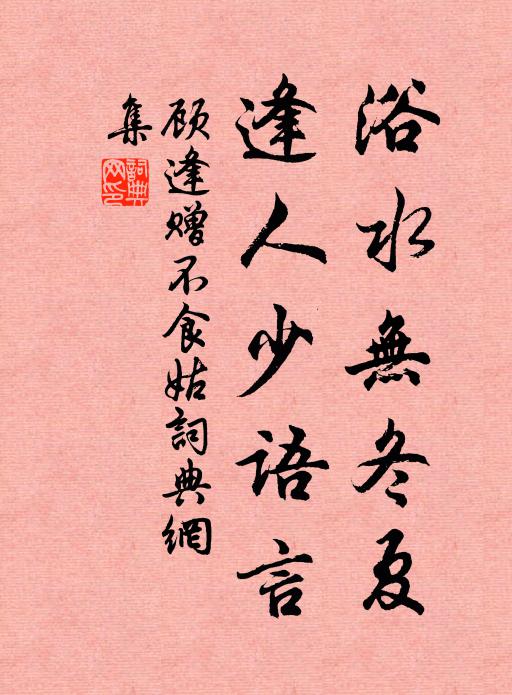 浴水無冬夏
逢人少語言
顾逢赠不食姑詞典網
集
詞典網印